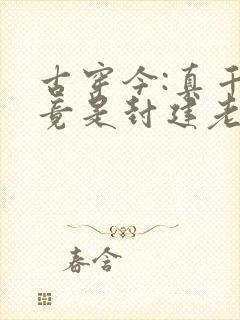 古穿今:真千
竟是封建老
春含